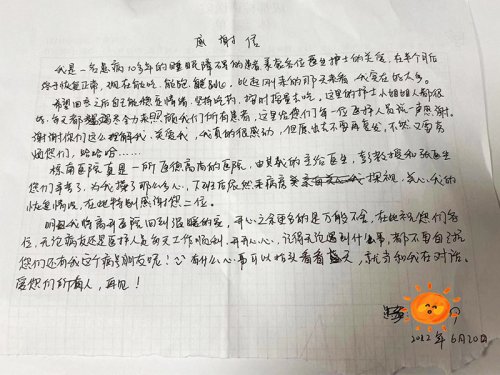 感谢信
我是一名患病10多年的睡眠障碍的患者,承蒙各位医生护士的关爱,在半个月后
终于恢复正常,现在能吃,能跑,能跳,比起刚来的那天来看,我实在好太多。
希望回去之后自己能稳定情绪,坚持吃药,按时按量去吃。这里的护士小姐姐人都很
好,每天都 尽力来照顾我们所有患者,这里给您们每一位医护人员说一声感谢。
谢谢你们这么理解我,关爱我,我真的很感动,但愿出去不要再复发,不然又要劳
烦您们,哈哈哈……
桂南医院真是一所医德高尚的医院,由其我的主治医生,彭教授和张医生
您们辛苦了,为我操了那么多心,下班后依然来病房 探视,关心我的
恢复情况,在此特别感谢您二位。
明日我将离开医院回到温暖的家,开心之余更多的是万般不舍,在此祝您们各
位,无论病友还是医护人员每天工作顺利,开开心心,记得无论遇到什么事,都不要自己扛
您们还有我这个病号朋友呢!有什么心事可以抬头看看蓝天,就当和我在对话。
爱您们所有人,再见!
2022年6月20日